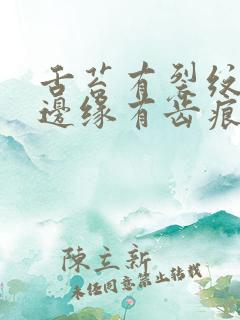 舌苔有裂纹
邊缘有齿痕
陳立新
未经同意禁止转载